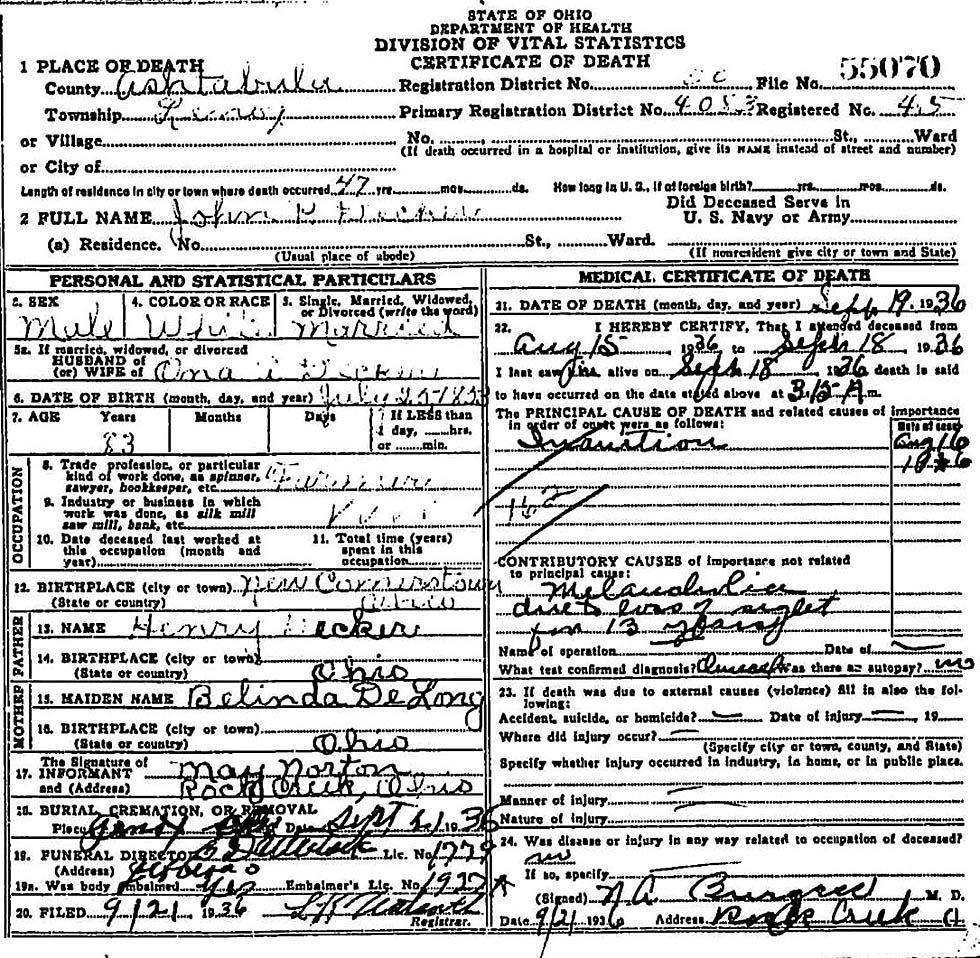 STATE OF OHIO
DEPARTMENT OF HEALTH
DIVISION OF VITAL STATISTICS
CERTIFICATE OF DEATH
55070
1 PLACE OF DEATH
County Ashtabula Registration District No. File No.
Township Primary Registration District No. 4053 Registered No. 45
or Village No. St., Ward
(If death occurred in a hospital or institution, give its NAME instead of street and number)
or City of
Length of residence in city or town where death occurred 47 yrs. mos. ds. How long in U. S., if of foreign birth? yrs. mos. ds.
2 FULL NAME John Did Deceased Serve in U. S. Navy or Army
(a) Residence. No. St., Ward.
(Usual place of abode) (If nonresident give city or town and State)
PERSONAL AND STATISTICAL PARTICULARS
3. SEX Male
4. COLOR OR RACE White
5. Single, Married, Widowed, or Divorced (write the word) Married
5a. If married, widowed, or divorced
HUSBAND of
(or) WIFE of
6. DATE OF BIRTH (month, day, and year) July 25 1853
7. AGE Years Months Days If LESS than
1 day, hrs.
or min.
83
OCCUPATION
8. Trade profession, or particular
kind of work done, as spinner,
sawyer, bookkeeper, etc.
9. Industry or business in which
work was done, as silk mill
saw mill, bank, etc.
10. Date deceased last worked at
this occupation (month and
year)
11. Total time (years)
spent in this
occupation
12. BIRTHPLACE (city or town) New Comerstown
(State or country) Ohio
FATHER
13. NAME Henry
14. BIRTHPLACE (city or town)
(State or country) Ohio
MOTHER
15. MAIDEN NAME Belinda DeLong
16. BIRTHPLACE (city or town)
(State or country) Ohio
17. The Signature of
INFORMANT May Norton
and (Address) Rock Creek, Ohio
18. BURIAL, CREMATION, OR REMOVAL
Place Date Sept 21 1936
19. FUNERAL DIRECTOR Lic. No. 1779
(Address)
19a. Was body embalmed yes Embalmer's Lic. No. 1927A
20. FILED 9/21 1936
Registrar.
MEDICAL CERTIFICATE OF DEATH
21. DATE OF DEATH (month, day, and year) Sept. 19. 1936
22. I HEREBY CERTIFY, That I attended deceased from
Aug 15 1936 to Sept 18 1936
I last saw alive on Sept 18 1936 death is said
to have occurred on the date stated above at 3:15 A m.
The PRINCIPAL CAUSE OF DEATH and related causes of importance
in order of onset were as follows:
Date of onset
Inanition Aug 16
1936
162
CONTRIBUTORY CAUSES of importance not related
to principal cause:
Melancholia
due to loss of sight
for 13 years
Name of operation Date of
What test confirmed diagnosis? Was there an autopsy? no
23. If death was due to external causes (violence) fill in also the following:
Accident, suicide, or homicide? Date of injury 19
Where did injury occur?
(Specify city or town, county, and State)
Specify whether injury occurred in industry, in home, or in public place.
Manner of injury
Nature of injury
24. Was disease or injury in any way related to occupation of deceased?
no
If so, specify
(Signed) M. D.
Date 9/21 1936 Address Rock Creek O.